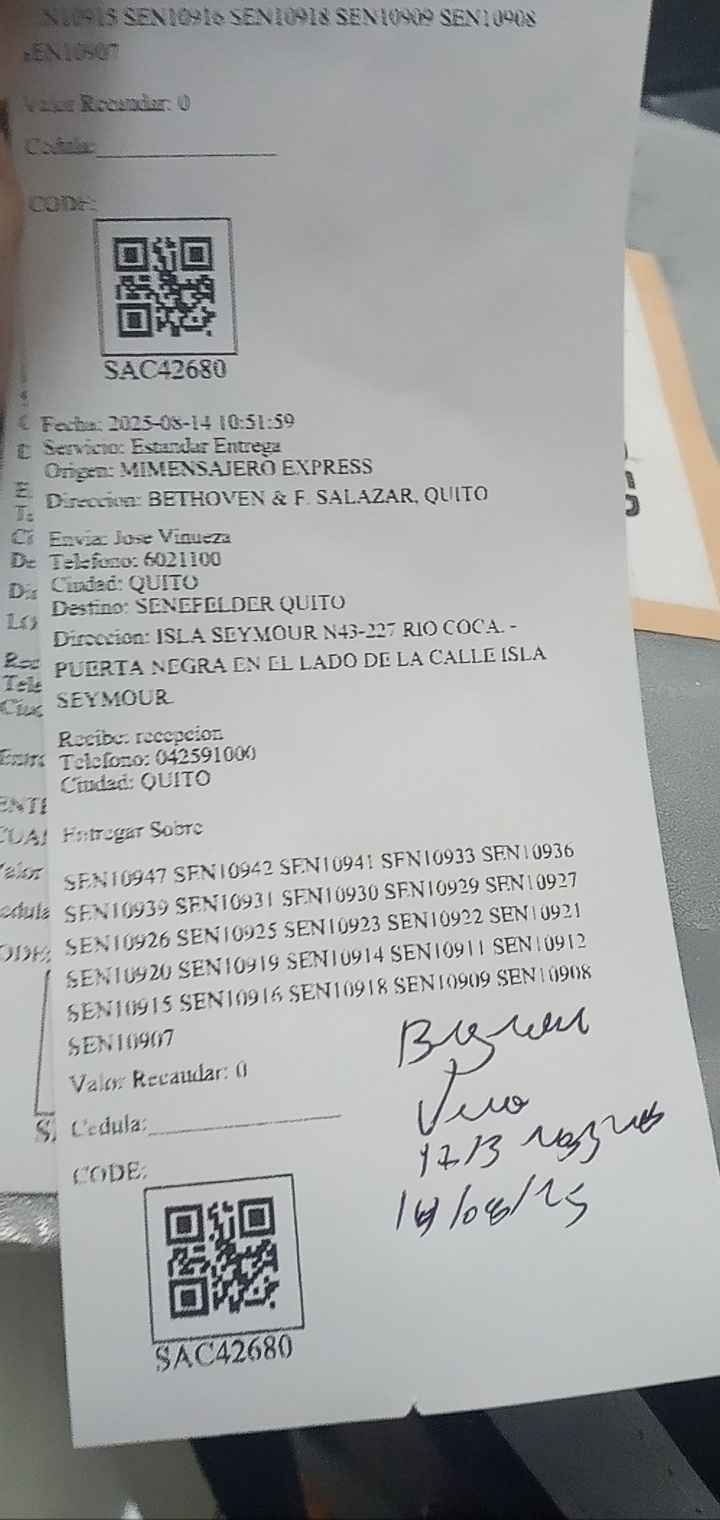 N10915 SEN10916 SEN10918 SEN10909 SEN10908
SEN10907
Valor Recaudar: 0
Cedula:
CODE:
SAC42680
Fecha: 2025-08-14 10:51:59
Servicio: Estandar Entrega
Origen: MIMENSAJERO EXPRESS
Direccion: BETHOVEN & F. SALAZAR, QUITO
Envia: Jose Vinueza
Telefono: 6021100
Ciudad: QUITO
Destino: SENEFELDER QUITO
Direccion: ISLA SEYMOUR N43-227 RIO COCA. -
PUERTA NEGRA EN EL LADO DE LA CALLE ISLA
SEYMOUR.
Recibe: recepcion
Telefono: 042591000
Ciudad: QUITO
Entregar Sobre
SEN10947 SEN10942 SEN10941 SEN10933 SEN10936
SEN10939 SEN10931 SEN10930 SEN10929 SEN10927
SEN10926 SEN10925 SEN10923 SEN10922 SEN10921
SEN10920 SEN10919 SEN10914 SEN10911 SEN10912
SEN10915 SEN10916 SEN10918 SEN10909 SEN10908
SEN10907
Valor Recaudar: 0
Cedula:
14/08/25
CODE:
SAC42680